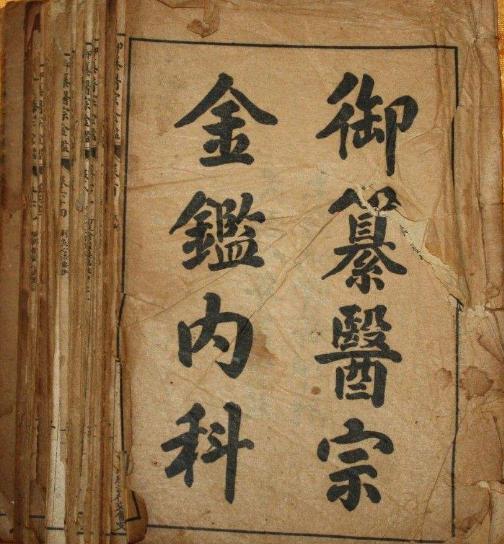 御纂醫宗
金鑑内科